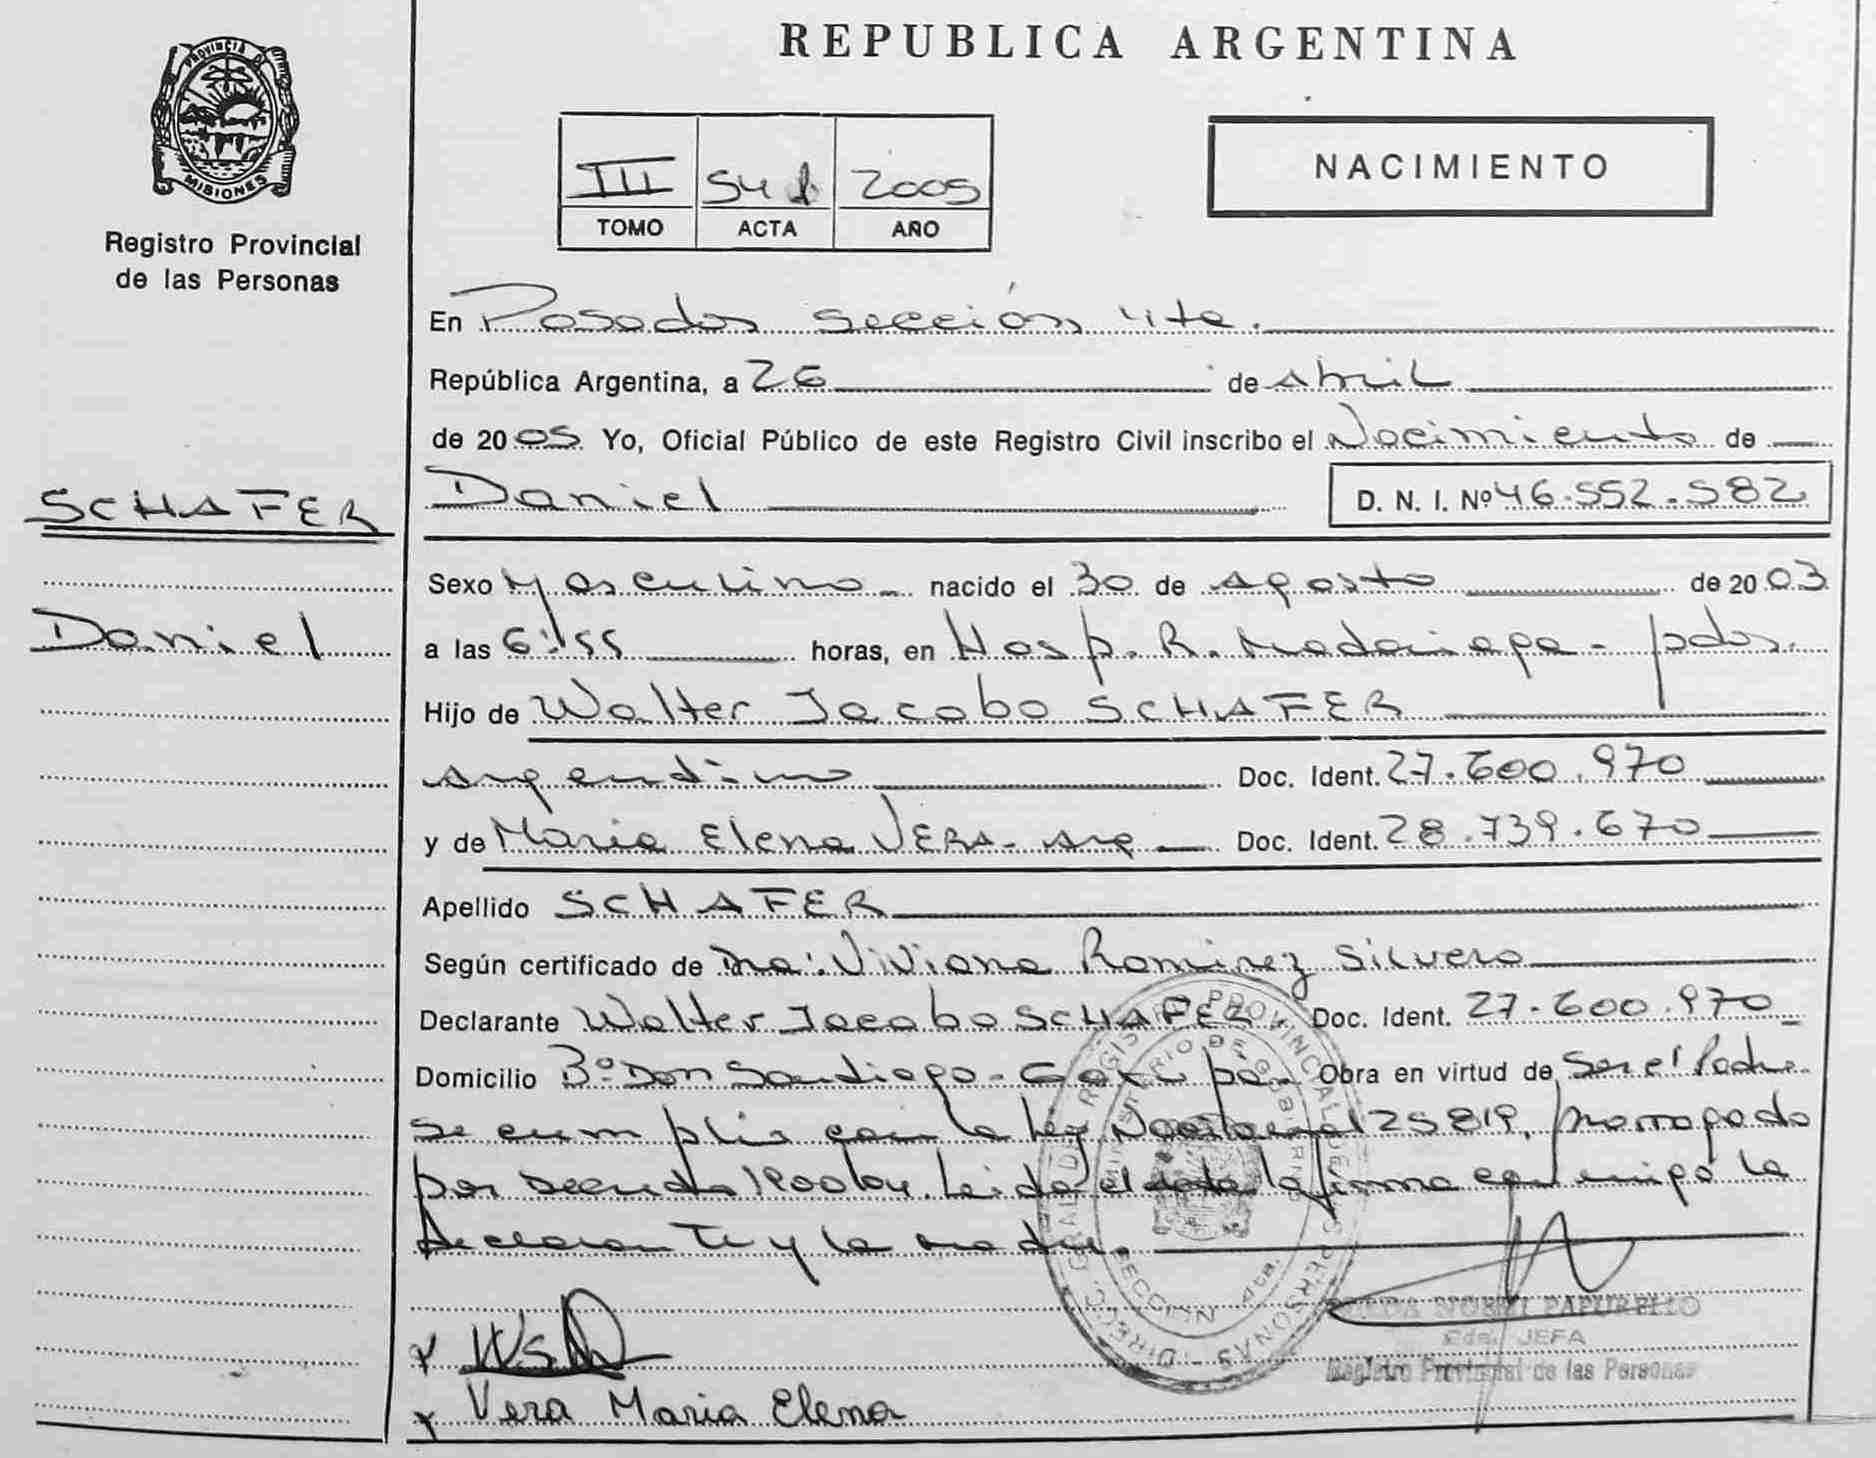 REPUBLICA ARGENTINA
PROVINCIA DE
MISIONES
Registro Provincial
de las Personas
III 541 2005
TOMO ACTA AÑO
NACIMIENTO
En Posadas sección 4ta.
República Argentina, a 26 de abril
de 2005 Yo, Oficial Público de este Registro Civil inscribo el Nacimiento de
SCHAFER
Daniel D. N. I. Nº 46.552.582
Sexo Masculino nacido el 30 de agosto de 2003
Daniel
a las 6:55 horas, en Hosp. R. Madariaga - pdas.
Hijo de Walter Jacobo SCHAFER
argentino Doc. Ident. 27.600.970
y de Maria Elena VERA - arg Doc. Ident. 28.739.670
Apellido SCHAFER
Según certificado de Dra: Viviana Ramirez Silvero
Declarante Walter Jacobo SCHAFER Doc. Ident. 27.600.970
Domicilio Bº Don Santiago - Garupá - Obra en virtud de ser el Padre
se cumplió con la ley Nacional 25819, prorrogado
por decreto 1200/04. Leida el acta la firma conmigo la
declarante y la madre.
DIREC. GRAL. DEL REGISTRO PROVINCIAL DE LAS PERSONAS
MINISTERIO DE GOBIERNO
SECCION 4ta.
NOEMI PAPURELLO
Cda. JEFA
Registro Provincial de las Personas
Vera Maria Elena